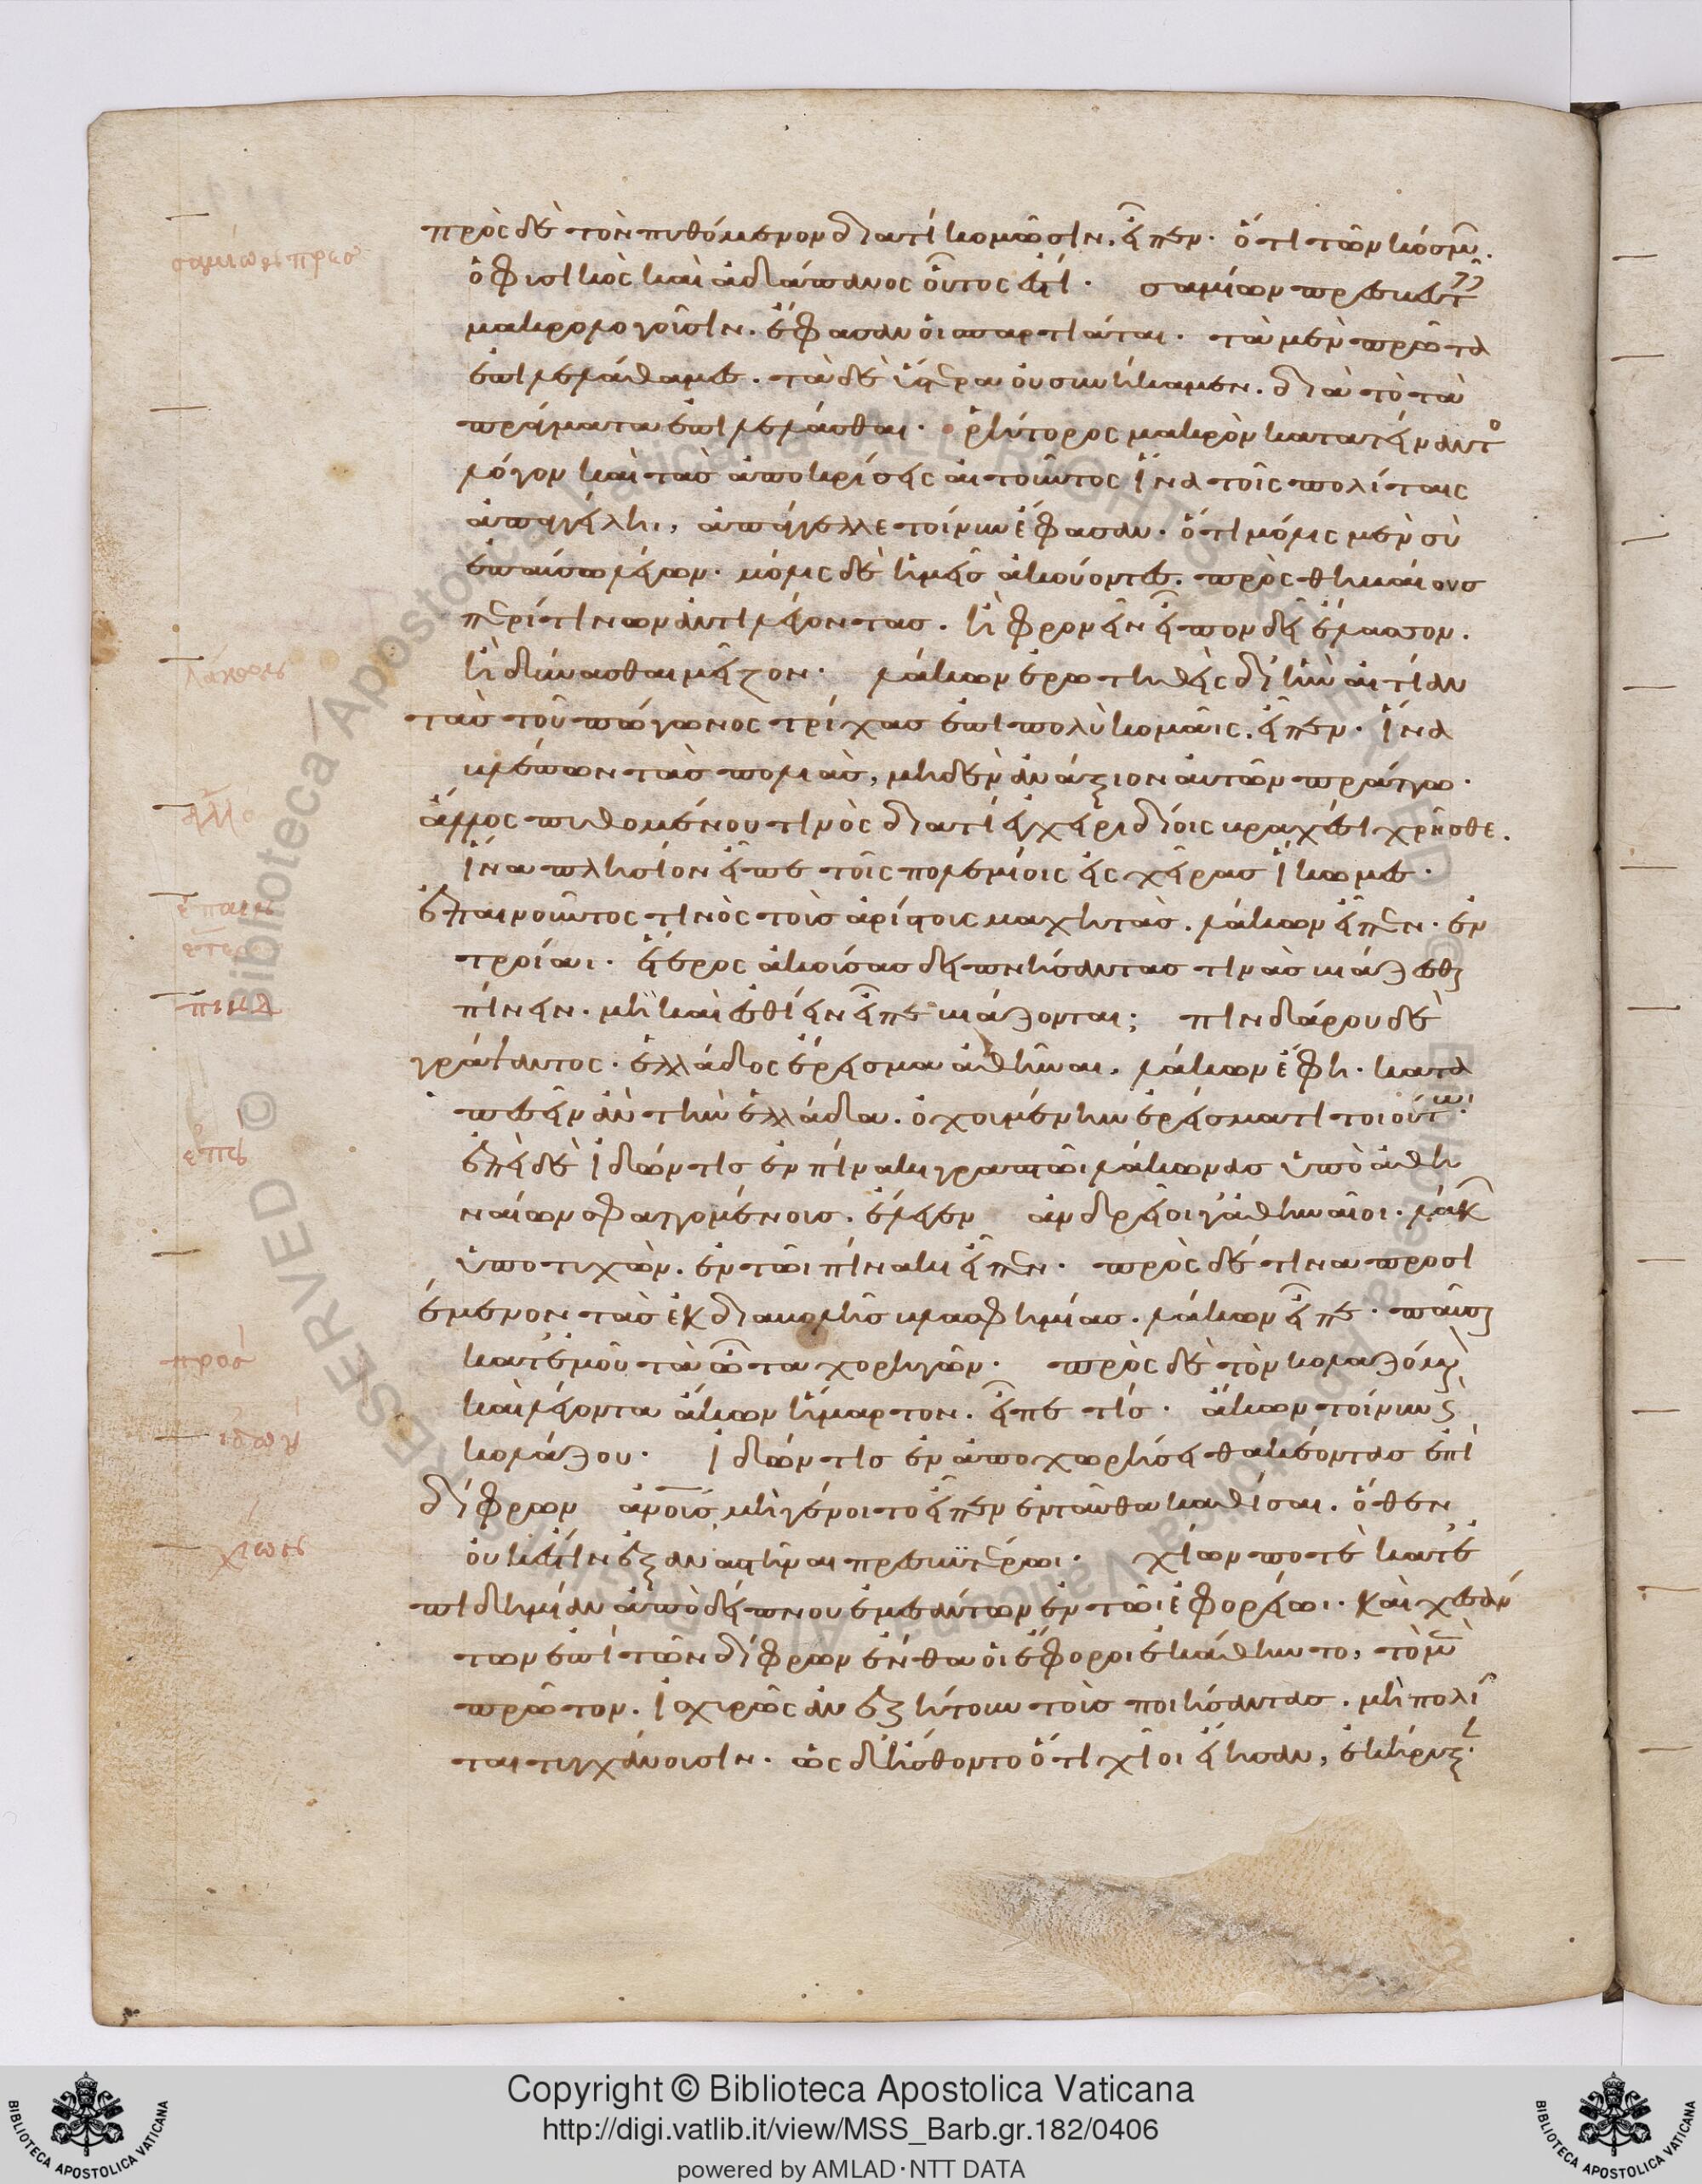 πρὸς δὲ τὸν πυθόμενον διατί κομῶσιν. εἶπεν· ὅτι τῶν κόσμων
ὁ φυσικὸς καὶ ἀδάπανος οὗτος ἐστί· σαμίων πρεσβευτ
μακρολογοῦσιν. ἔφασαν οἱ σπαρτιάται· τὰ μὲν πρῶτα
ἐπιλελάθαμες. τὰ δὲ ὕστερα οὐ συνήκαμεν. διὰ τὸ τὰ
πρᾶματα ἐπιλελάσθαι· ῥήτορος μακρὸν κατατείναντο
λόγον καὶ τὰς ἀποκρίσεις αἰτοῦντος ἵνα τοῖς πολίταις
ἀπαγγέλη, ἀπάγγελλε τοίνυν ἔφασαν· ὅτι μόλις μὲν σὺ
ἐπαύσω λέγων· μόλις δὲ ἡμεῖς ἀκούοντες. πρὸς θηβαίους
περί τινων ἀντιλέγοντας. ἢ φρονεῖν εἶπον δεῖ ἔλασσον.
ἢ δύνασθαι μεῖζον· λάκων ἐρωτηθεὶς δι' ἣν αἰτίαν
τὰς τοῦ πώγωνος τρίχας ἐπιπολὺ κομᾶις. εἶπεν· ἵνα
βλέπων τὰς πολιὰς, μηδὲν ἀνάξιον αὐτῶν πράττω·
ἄλλος πυθομένου τινὸς διατί ἐγχειριδίοις βραχέσι χρῆσθε.
ἵνα πλησίον εἶπε τοῖς πολεμίοις εἰς χεῖρας ἥκωμες·
ἐπαινοῦντος τινὸς τοὺς ἀρίστους μαχητὰς. λάκων εἶπεν· ἐν
τροίαι· ἕτερος ἀκούσας δειπνήσαντας τινὰς βιάζεσθαι
πίνειν. μὴ καὶ ἐσθίειν εἶπε βιάζονται; πινδάρου δὲ
γράψαντος· ἑλλάδος ἔρεισμα ἀθῆναι. λάκων ἔφη· κατα
πεσεῖν ἂν τὴν ἑλλάδα. ὀχουμένην ἐρείσματι τοιούτωι·
ἐπεὶ δὲ ἰδών τις ἐν πίνακι γραπτῶι λάκωνας ὑπὸ ἀθη
ναίων σφαττομένους. ἔλεγεν ἀνδρεῖοι γ' ἀθηναῖοι. λάκ
ὑποτυχὼν. ἐν τῶι πίνακι εἶπεν· πρὸς δέ τινα προσι
έμενον τὰς ἐκ διαβολῆς βλασφημίας. λάκων εἶπε· παῦσαι
κατ' ἐμοῦ τὰ ὦτα χορηγῶν· πρὸς δὲ τὸν κολαζόμενον
καὶ λέγοντα ἄκων ἥμαρτον. εἶπέ τις· ἄκων τοίνυν
κολάζου· ἰδών τις ἐν ἀποχωρήσει θακέοντας ἐπὶ
δίφρων ἀνους μὴ γένοιτο εἶπεν ἐνταῦθα καθίσαι. ὅθεν
οὐκ ἔστιν ἐξαναστῆναι πρεσβυτέρωι· χίων ποτὲ κατ' ἐ
πιδημίαν ἀπὸ δείπνου ἐμεσάντων ἐν τῶι ἐφορείωι. καὶ χεσάν
των ἐπὶ τῶν δίφρων ἔνθα οἱ ἔφοροι ἐκάθηντο, τὸ μὲν
πρῶτον. ἰσχυρῶς ἀνεζήτουν τοὺς ποιήσαντας. μὴ πολῖ
ται τυγχάνουσιν. ὡς δ' ἤσθοντο ὅτι χῖοι εἴησαν, ἐκήρυξ
σαμίων πρεσ
λάκων
ἄλλο
ἐπαιν
ἕτερ
πινδ
ἐπεὶ
πρὸς
χίων